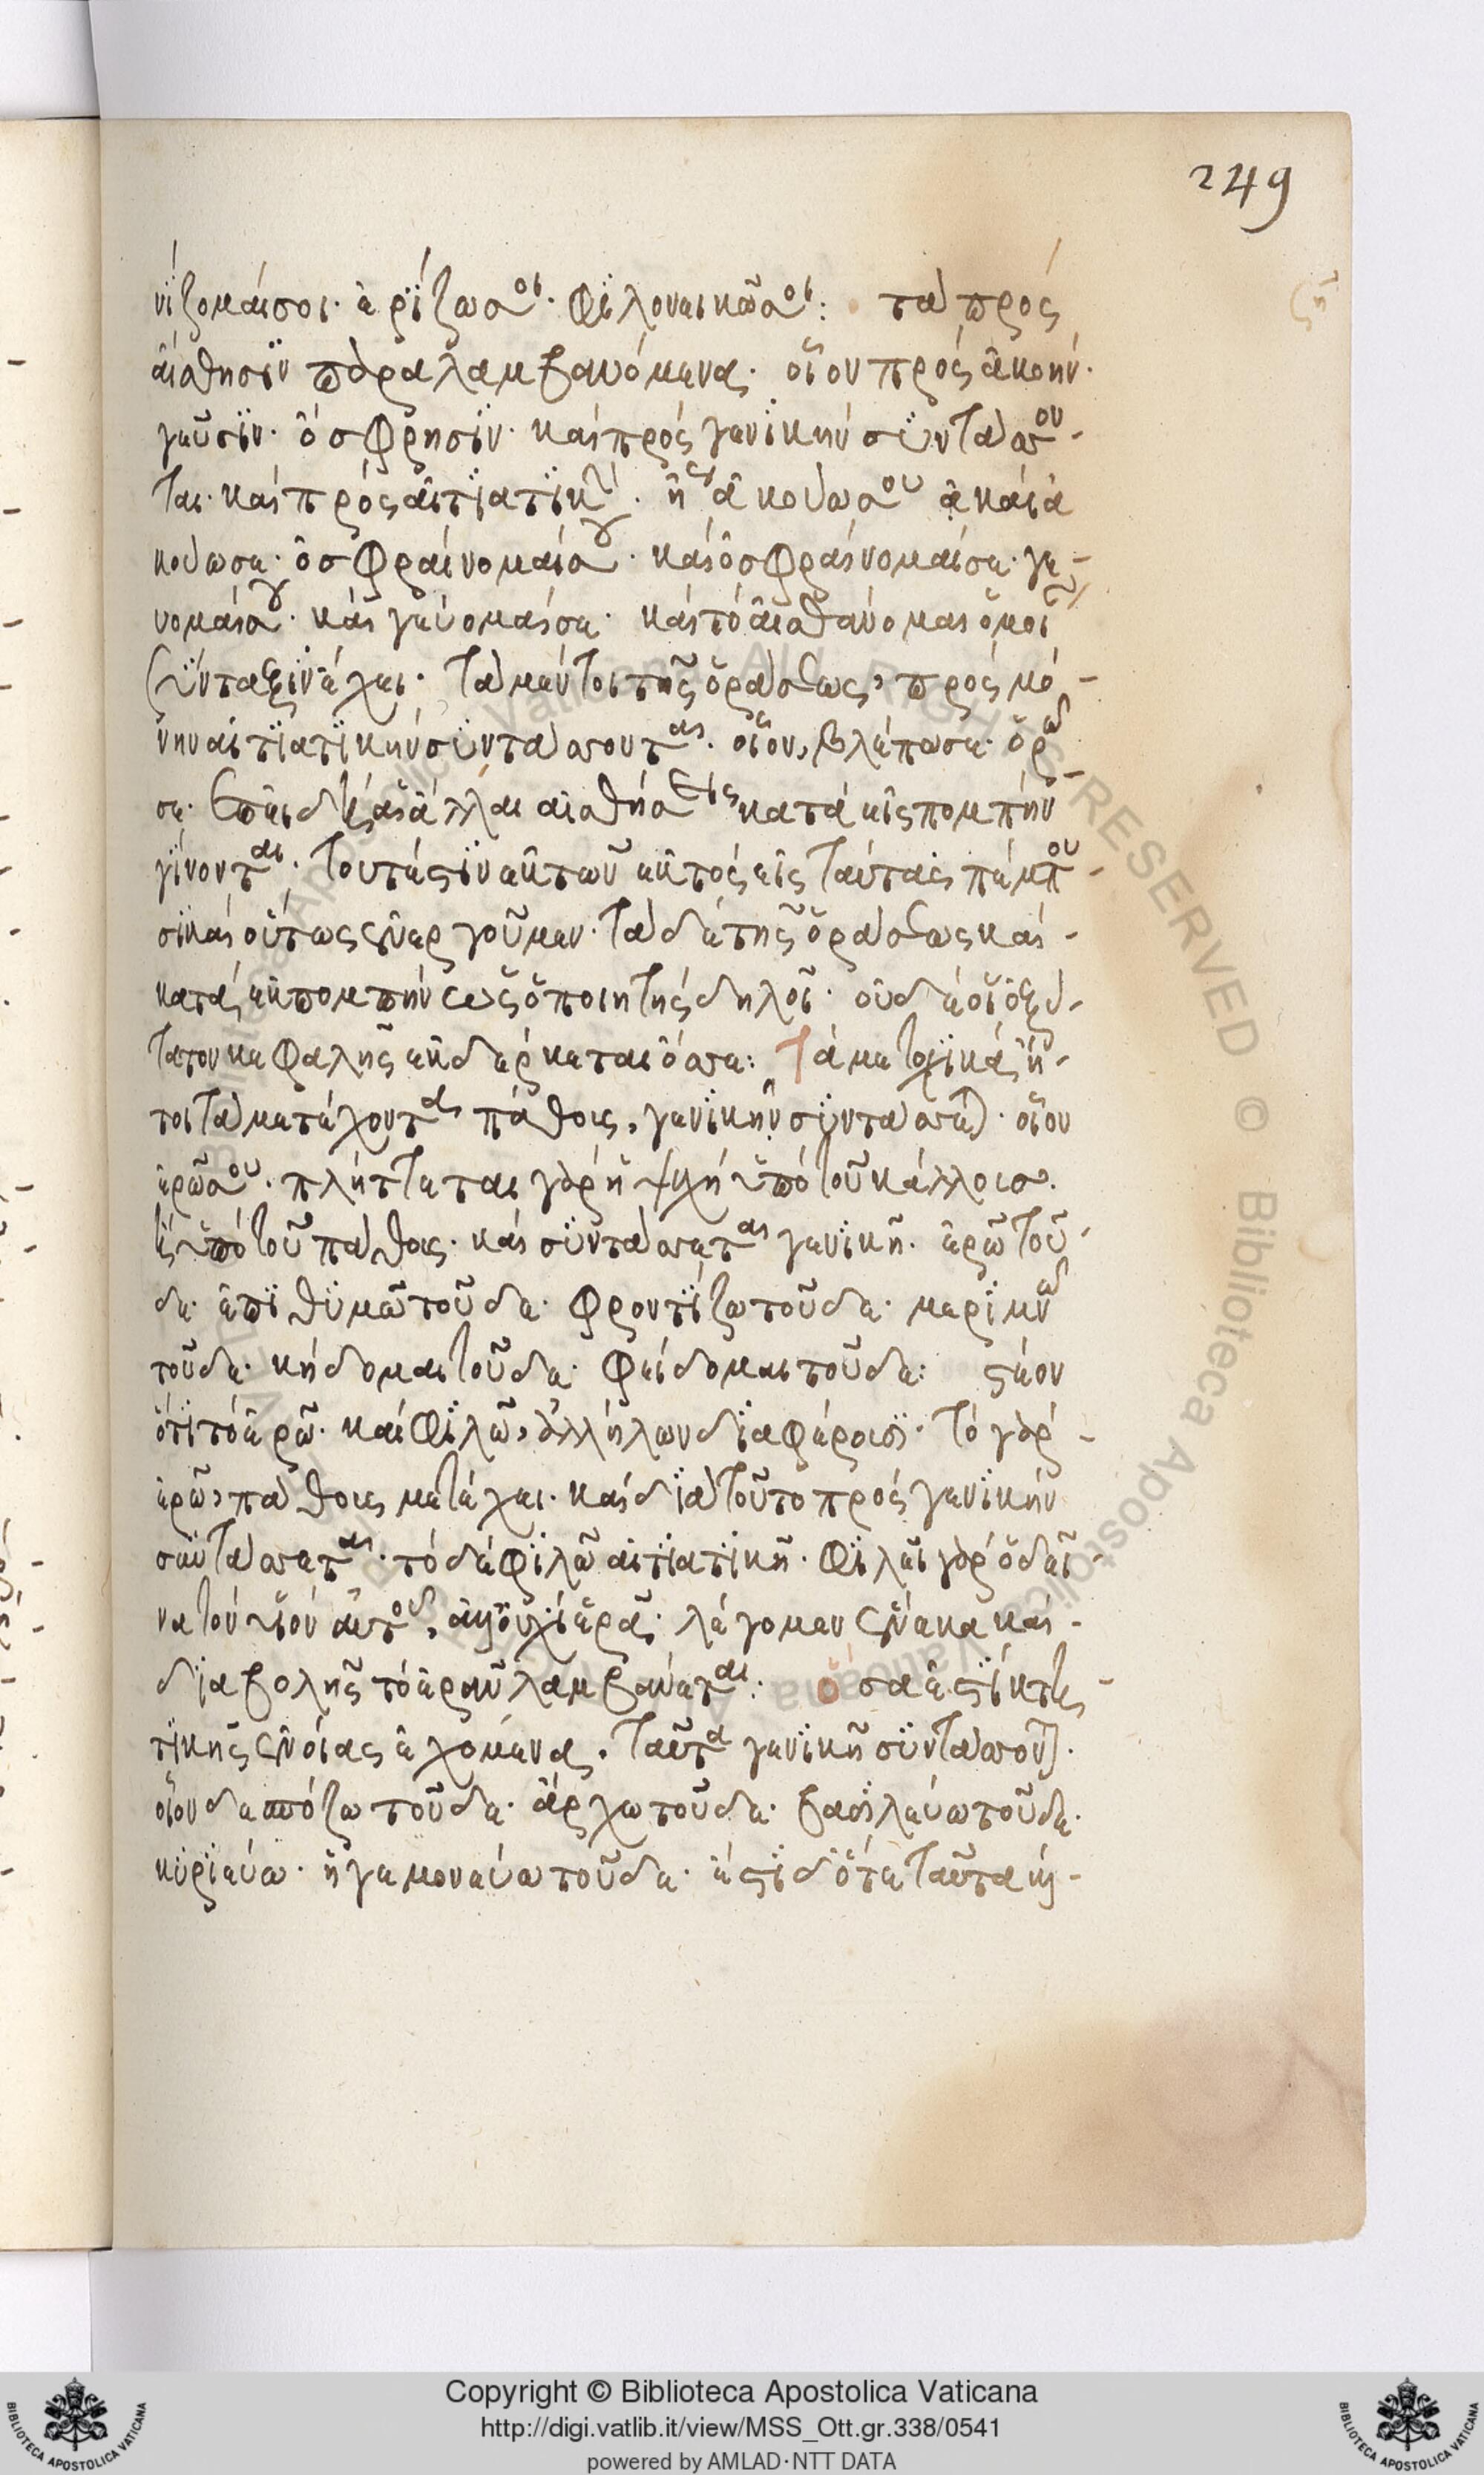 249
νίζομαί σοι· ἐρίζω σοι· φιλονεικῶ σοι: τὰ πρὸς
αἴσθησιν παραλαμβανόμενα· οἷον πρὸς ἀκοήν·
γεῦσιν· ὄσφρησιν· καὶ πρὸς γενικὴν συντάσσον-
ται· καὶ πρὸς αἰτιατικήν· ἀκούω σου καὶ ἀ
κούω σε· ὀσφραίνομαί σου· καὶ ὀσφραίνομαί σε· γε-
νομαί σου· καὶ γεύομαί σε· καὶ τὸ αἰσθάνομαι ὁμοί
σύνταξιν ἔχει· τὰ μέντοι τῆς ὁράσεως, πρὸς μό-
νην αἰτιατικὴν συντάσσονται· οἷον, βλέπω σε· ὁρῶ
σε· ἐπειδὴ αἱ ἄλλαι αἰσθήσεις κατὰ εἰσπομπὴν
γίνονται· τουτέστιν ἐκ τῶν ἐκτὸς εἰς ταύτας πέμπου-
σι καὶ οὕτως ἐνεργοῦμεν· τὰ δὲ τῆς ὁράσεως καὶ-
κατὰ ἐκπομπὴν ὡς ὁ ποιητὴς δηλοῖ· οὐδέ οἱ ὀξύ-
τατον κεφαλῆς ἐκδέρκεται ὄσσε: τὰ μετοχικὰ ἤ-
τοι τὰ μετέχοντα πάθους, γενικὴν συντάσσεται· οἷον
ἐρῶ σου· πλήττεται γὰρ ἡ ψυχὴ ὑπὸ τοῦ κάλλους·
ἢ ὑπὸ τοῦ πάθους· καὶ συντάσσεται γενικῇ· ἐρῶ τοῦ-
δε· ἐπιθυμῶ τοῦδε· φροντίζω τοῦδε· μεριμνῶ
τοῦδε· κήδομαι τοῦδε· φείδομαι τοῦδε: στέον
ὅτι τὸ ἐρῶ· καὶ φιλῶ, ἀλλήλων διαφέρουσι· τὸ γὰρ-
ἐρῶ, πάθους μετέχει· καὶ διὰ τοῦτο πρὸς γενικὴν
συντάσσεται· τὸ δὲ φιλῶ αἰτιατικῇ· φιλεῖ γὰρ ὁ δεῖ-
να τὸν υἱὸν αὐτοῦ, ἀλλ' οὐχὶ ἐρᾷ· λέγομεν ἕνεκα καὶ-
διαβολῆς τὸ ἐρᾶν λαμβάνεται: ὅσα ἐστὶ κτη-
τικῆς ἐννοίας ἐχόμενα, ταῦτα γενικῇ συντάσσονται·
οἷον δεσπόζω τοῦδε· ἄρχω τοῦδε· βασιλεύω τοῦδε·
κυριεύω· ἡγεμονεύω τοῦδε· ἔστι δ' ὅτε ταῦτα
Copyright © Biblioteca Apostolica Vaticana
http://digi.vatlib.it/view/MSS_Ott.gr.338/0541
powered by AMLAD·NTT DATA